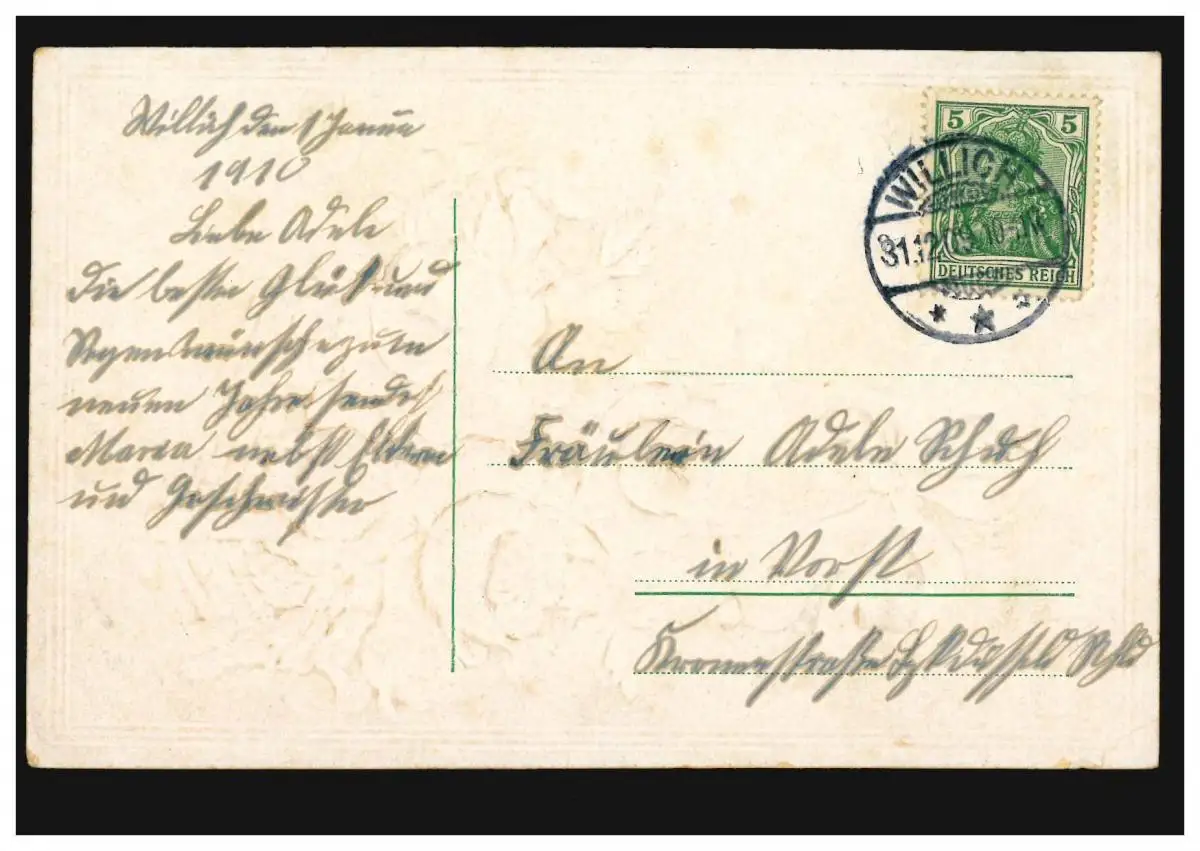 Willich den 1 Januar
1910
Liebe Adele
Die besten Glück und
Segenswünsche zum
neuen Jahre sendet
Maria nebst Eltern
und Geschwister
5 5
DEUTSCHES REICH
WILLICH
31.12.09. 10-11N
* * a
An
Fräulein Adele Schuh
in Vorst
Kronenstraße